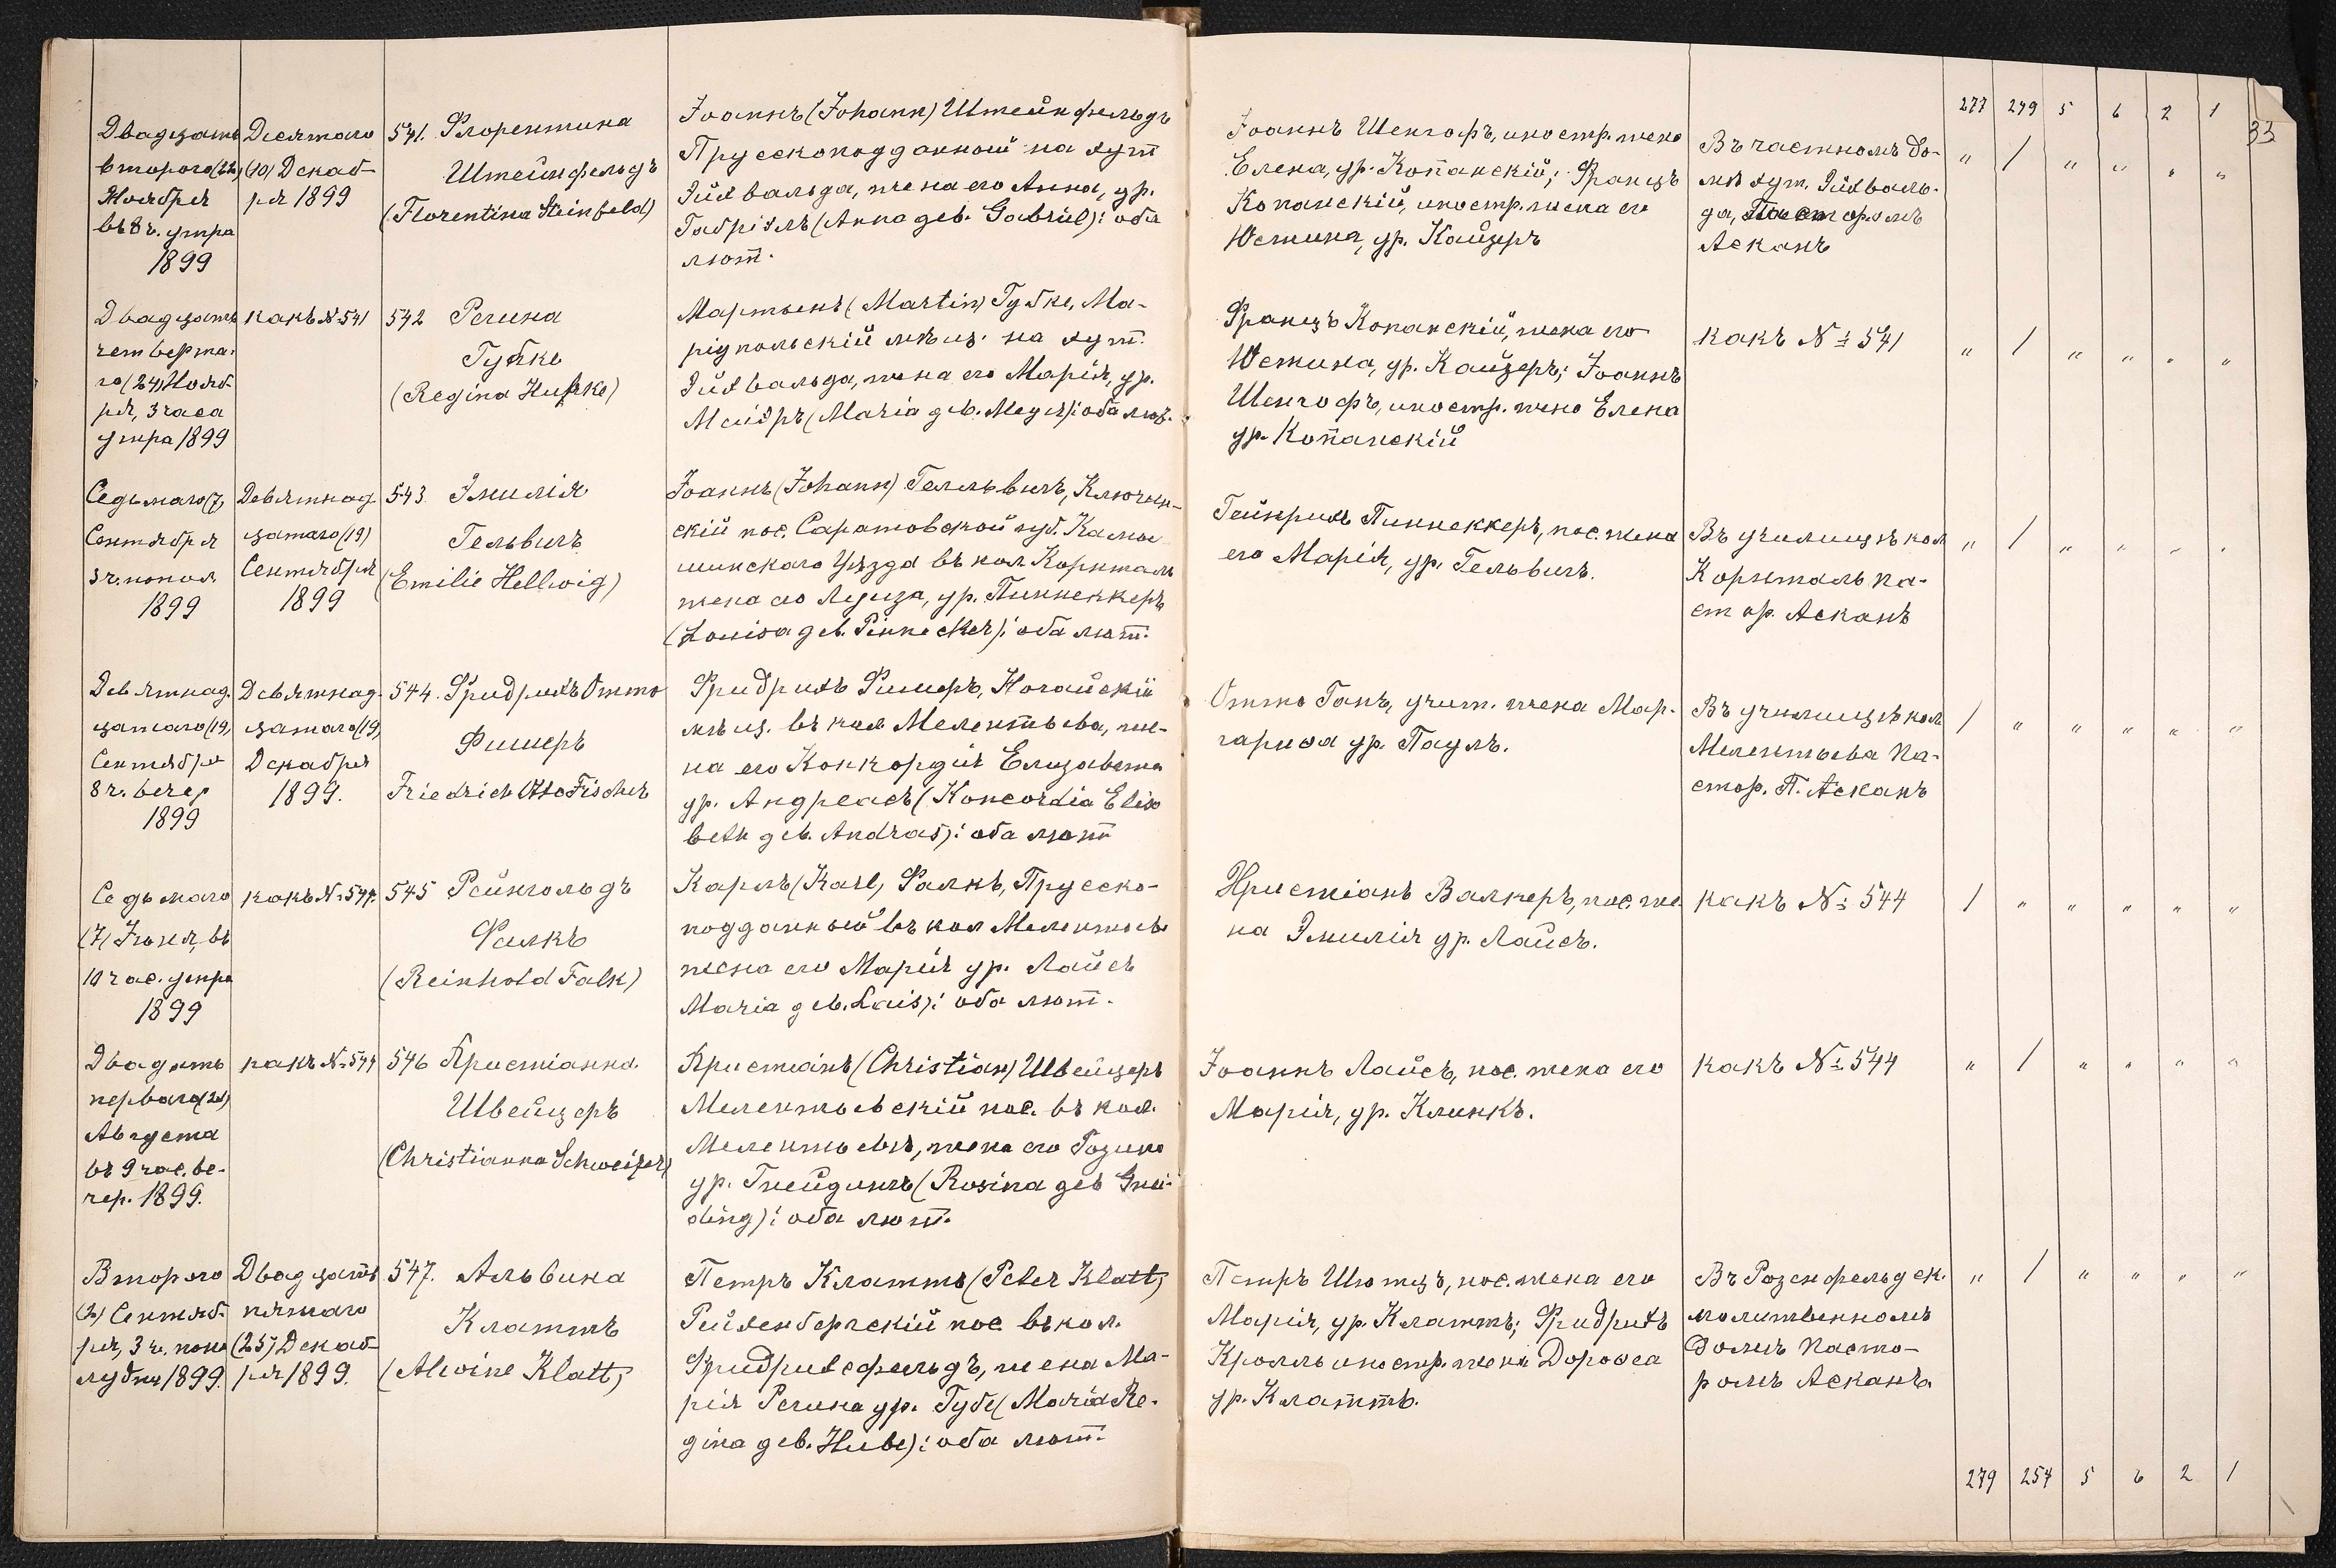 277 279 5 6 2 1
33
Двадцать
второго (22)
Ноября
въ 8 ч. утра
1899
Десятаго
(10) Декаб-
ря 1899
541. Флорентина
Штейнфельдъ
(Florentina Steinfeld)
Іоаннъ (Johann) Штейнфельдъ
Прусскоподданный на хут
Эйхвальда, жена его Анна, ур.
Габріэль (Anna geb. Gabriel): оба
лют.
Іоаннъ Шенгофъ, иностр. жена
Елена, ур. Копанскій; Францъ
Копанскій, иностр. жена его
Юстина, ур. Кайзеръ
Въ частномъ до-
мѣ хут. Эйхваль-
да, Пасторомъ
Асканъ
" 1 " " " "
Двадцать
четверта-
го (24) Нояб-
ря, 3 часа
утра 1899
какъ № 541
542 Регина
Губке
(Regina Hubke)
Мартынъ (Martin) Губке, Ма-
ріупольскій мѣщ. на хут.
Эйхвальда, жена его Марія, ур.
Мейэръ (Maria geb. Meyer): оба лют.
Францъ Копанскій, жена его
Юстина, ур. Кайзеръ; Іоаннъ
Шенгофъ, иностр. жена Елена
ур. Копанскій
какъ № 541
" 1 " " " "
Седьмаго (7)
Сентября
3 ч. попол.
1899
Девятнад-
цатаго (19)
Сентября
1899
543. Эмилія
Гельвигъ
(Emilie Hellwig)
Іоаннъ (Johann) Гелльвигъ, Ключин-
скій пос. Саратовской губ. Камы
шинскаго Уѣзда въ кол Корнталь
жена его Луиза, ур. Пиннеккеръ
(Louisa geb. Pinnecker): оба лют.
Гейнрихъ Пиннеккеръ, пос. жена
его Марія, ур. Гельвигъ.
Въ училищѣ кол
Корнталь па-
стор. Асканъ
" 1 " " " "
Девятнад-
цатаго (19)
Сентября
8 ч. вечер
1899
Девятнад-
цатаго (19)
Декабря
1899.
544. Фридрихъ Отто
Фишеръ
Friedrich Otto Fischer
Фридрихъ Фишеръ, Ногайскій
мѣщ. въ кол Мелентьева, же-
на его Конкордія Елизавета
ур. Андреасъ (Koncordia Elisa
beth geb. Andras): оба лют
Отто Ганъ, учит. жена Мар-
гариѳа ур. Пауль.
Въ училищѣ кол
Мелентьева Па-
стор. П. Асканъ
1 " " " " "
Седьмаго
(7) Іюня, въ
10 час. утра
1899
какъ № 544.
545 Рейнгольдъ
Фалкъ
(Reinhold Falk)
Карлъ (Karl) Фалкъ, Прусско-
подданный въ кол Мелентьева
жена его Марія ур. Лайсъ
Maria geb. Lais): оба лют.
Христіанъ Валкеръ, пос. же
на Эмилія ур. Лайсъ.
какъ № 544
1 " " " " "
Двадцать
перваго (21)
Августа
въ 9 час. ве-
чер. 1899.
какъ № 544
546 Христіанна
Швейцеръ
(Christianna Schweizer)
Христіанъ (Christian) Швейцеръ
Мелентьевскій пос. въ кол.
Мелентьевѣ, жена его Розина
ур. Гнейдингъ (Rosina geb Gnei-
ding): оба лют.
Іоаннъ Лайсъ, пос. жена его
Марія, ур. Клинкъ.
какъ № 544
" 1 " " " "
Второго
(2) Сентяб-
ря, 3 ч. попо
лудни 1899.
Двадцать
пятаго
(25) Декаб-
ря 1899.
547. Альвина
Клаттъ
(Alwine Klatt)
Петръ Клаттъ (Peter Klatt)
Рейхенбергскій пос. въ кол.
Фридрихсфельдъ, жена Ма-
рія Регина ур. Губе (Maria Re-
gina geb. Hube): оба лют.
Петръ Шютцъ, пос. жена его
Марія, ур. Клаттъ; Фридрихъ
Кролль иностр. жена Дороѳеа
ур. Клаттъ.
Въ Розенфельдск.
молитвенномъ
Домѣ Пасто-
ромъ Асканъ
" 1 " " " "
279 254 5 6 2 1